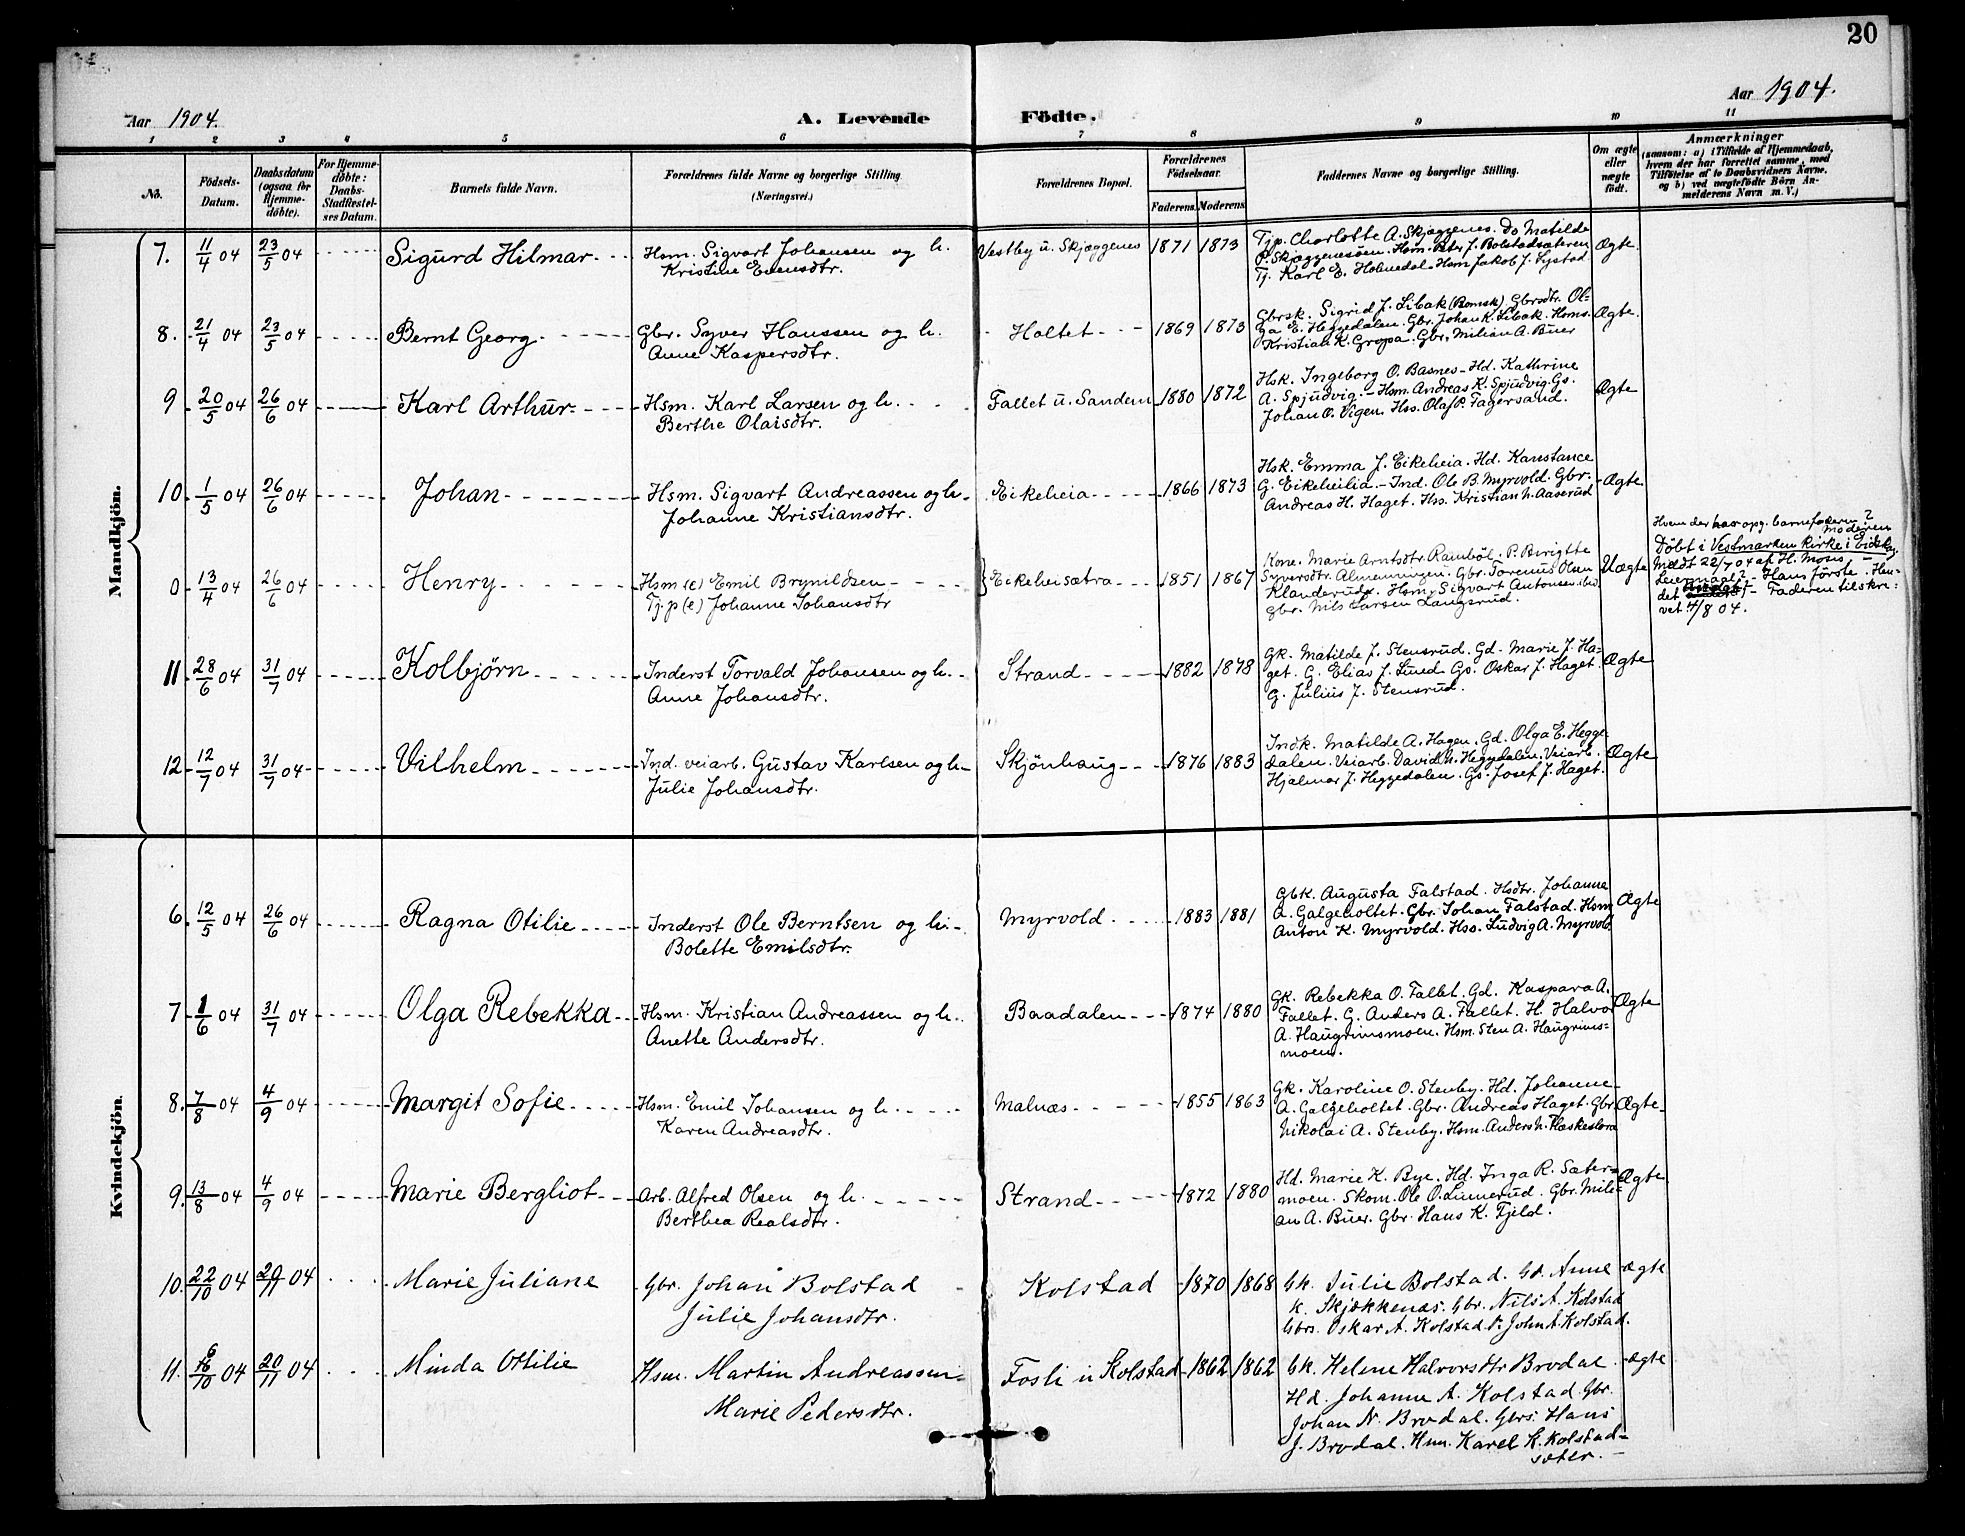 20
Aar 1904. A. Levende Födte. Aar 1904.
1 2 3 4 5 6 7 8 9 10 11
No. Födsels-Datum. Daabsdatum (ogsaa for Hjemme-döbte). For Hjemme-döbte: Daabs-Stadfæstel-ses Datum. Barnets fulde Navn. Forældrenes fulde Navne og borgerlige Stilling (Næringsvei.) Forældrenes Bopæl. Forældrenes Födselsaar. Faderens. Moderens. Faddernes Navne og borgerlige Stilling. Om ægte eller uægte födt. Anmærkninger (saasom: a) i Tilfælde af Hjemmedaab, hvem der har forrettet samme, med Tilföielse af to Daabsvidners Navne, og b) ved uægtefödte Börn An-melderens Navn m. V.)
Mandkjön.
7. 11/4 04 23/5 04 Sigurd Hilmar Hsm. Sigvart Johansen og h. Vestby u. Skjæggenes 1871 1873 Tjp. Charlotte A. Skjæggenes. Do Matilde Ægte.
Kristine Evensdtr. P. Skjæggenesöen. Hsm. Peder J. Bolstadsæteren
Tj. Karl E. Holmedal. Hsm Jakob J. Systad
8. 21/4 04 23/5 04 Bernt Georg Gbr. Syver Hanssen og h. Holtet 1869 1873 Gbrsk. Sigrid J. Libak (Romsk) Gbrsdtr. Ol- Ægte.
Anne Kaspersdtr. ga E. Heggedalen. Gbr. Johan K. Libak. Hsms.
Kristian K. Gropa. Gbr. Milian A. Buer
9 20/5 04 26/6 04 Karl Arthur Hsm. Karl Larsen og h. Fallet u. Sandem 1880 1872 Hsk. Ingeborg O. Basnes - Hd. Kathrine Ægte
Berthe Olaisdtr. A. Spjudvig. - Hsm. Andreas K. Spjudvig. Gs.
Johan O. Vigen. Hss. Olaf P. Fagersand.
10. 1/5 04 26/6 04 Johan Hsm. Sigvart Andreassen og h. Eikeheia 1866 1873 Hsk. Emma J. Eikeheia. Hd. Kanstance Ægte
Johanne Kristiansdtr. G. Eikeheilia. - Ind. Ole B. Myrvold. Gbr.
Andreas H. Haget. Hss. Kristian N. Aaserud
0 13/4 04 26/6 04 Henry Hsm (e) Emil Brynildsen Eikeheisætra 1851 1867 Kone. Marie Arntsdtr. Ramböl. P. Birigtte Uægte Hvem der har opg. barnefaderen? Moderen
Tj.p (e) Johanne Johansdtr Syversdtr. Almenningen. Gbr. Torenus Olsen Döbt i Vestmarken kirke i Eidskog.
Klanderud. Hsm. Sigvart Antonsen ibid. Meldt 22/7 04 af H. Moss
Gbr. Nils Larsen Langsrud. Leiermaal? - Hans förste. Hen-
det - Faderen tilskre-
vet 4/8 04.
11 28/6 04 31/7 04 Kolbjørn Inderst Torvald Johansen og h. Strand 1882 1878 Gk. Matilde J. Stensrud. Gd. Marie J. Ha- Ægte
Anne Johansdtr. get. G. Elias J. Lund Gs. Oskar J. Haget.
G. Julius J. Stensrud.
12 12/7 04 31/7 04 Vilhelm Ind. veiarb. Gustav Karlsen og h. Skjönhaug 1876 1883 Indk. Matilde A. Hagen. Gd. Olga E. Hegge- Ægte
Julie Johansdtr. dalen. Veiarb. David N. Heggedalen. Veiarb.
Hjalmar J. Heggedalen. Gs. Josef J. Haget.
Kvindekjön.
6. 12/5 04 26/6 04 Ragna Otilie Inderst Ole Berntsen og h. Myrvold 1883 1881 Gbk. Augusta Falstad. Hsdtr. Johanne Ægte
Bolette Emilsdtr. A. Galgeholtet. Gbr. Johan Falstad. Hsm
Anton K. Myrvold. Hss. Ludvig A. Myrvold.
7 1/6 04 31/7 04 Olga Rebekka Hsm. Kristian Andreassen og h. Baadalen 1874 1880 Gk. Rebekka O. Fallet. Gd. Kaspara A. Ægte
Anette Andersdtr. Fallet. G. Anders A. Fallet. H. Halvor
A. Haugrimsmoen. Hsm. Sten A. Haugrims-
moen.
8. 7/8 04 4/9 04 Margit Sofie Hsm. Emil Johansen og h. Malnæs 1855 1863 Gk. Karoline O. Stenby. Hd. Johanne Ægte
Karen Andreasdtr. A. Galgeholtet. Gbr. Andreas Haget. Gbr
Nikolai A. Stenby. Hsm. Anders N. Flæskeslora
9. 13/8 04 4/9 04 Marie Bergliot Arb. Alfred Olsen og h. Strand 1872 1880 Hd. Marie K. Bye. Hd. Inga R. Sæter- Ægte
Berthea Realsdtr. moen. Skom. Ole O. Linnerud. Gbr. Mili-
an A. Buer. Gbr. Hans K. Fjeld.
10. 22/10 04 20/11 04 Marie Juliane Gbr. Johan Bolstad Kolstad 1870 1868 Gk. Julie Bolstad. Gd. Anne ægte
Julie Johansdtr. K. Skjækkenæs. Gbr. Nils A. Kolstad
Gbrs. Oskar A. Kolstad. P. John A. Kolstad.
11. /10 04 20/11 04 Minda Ottilie Hsm. Martin Andreassen Fosli u Kolstad 1862 1862 Gk. Helene Halvorsdtr Brodal. ægte
Marie Pedersdtr. Hd. Johanne A. Kolstad. Gbr.
Johan N. Brodal. Gbrs. Hans
J. Brodal. Hsm. Karel K. Kolstad-
sæter.